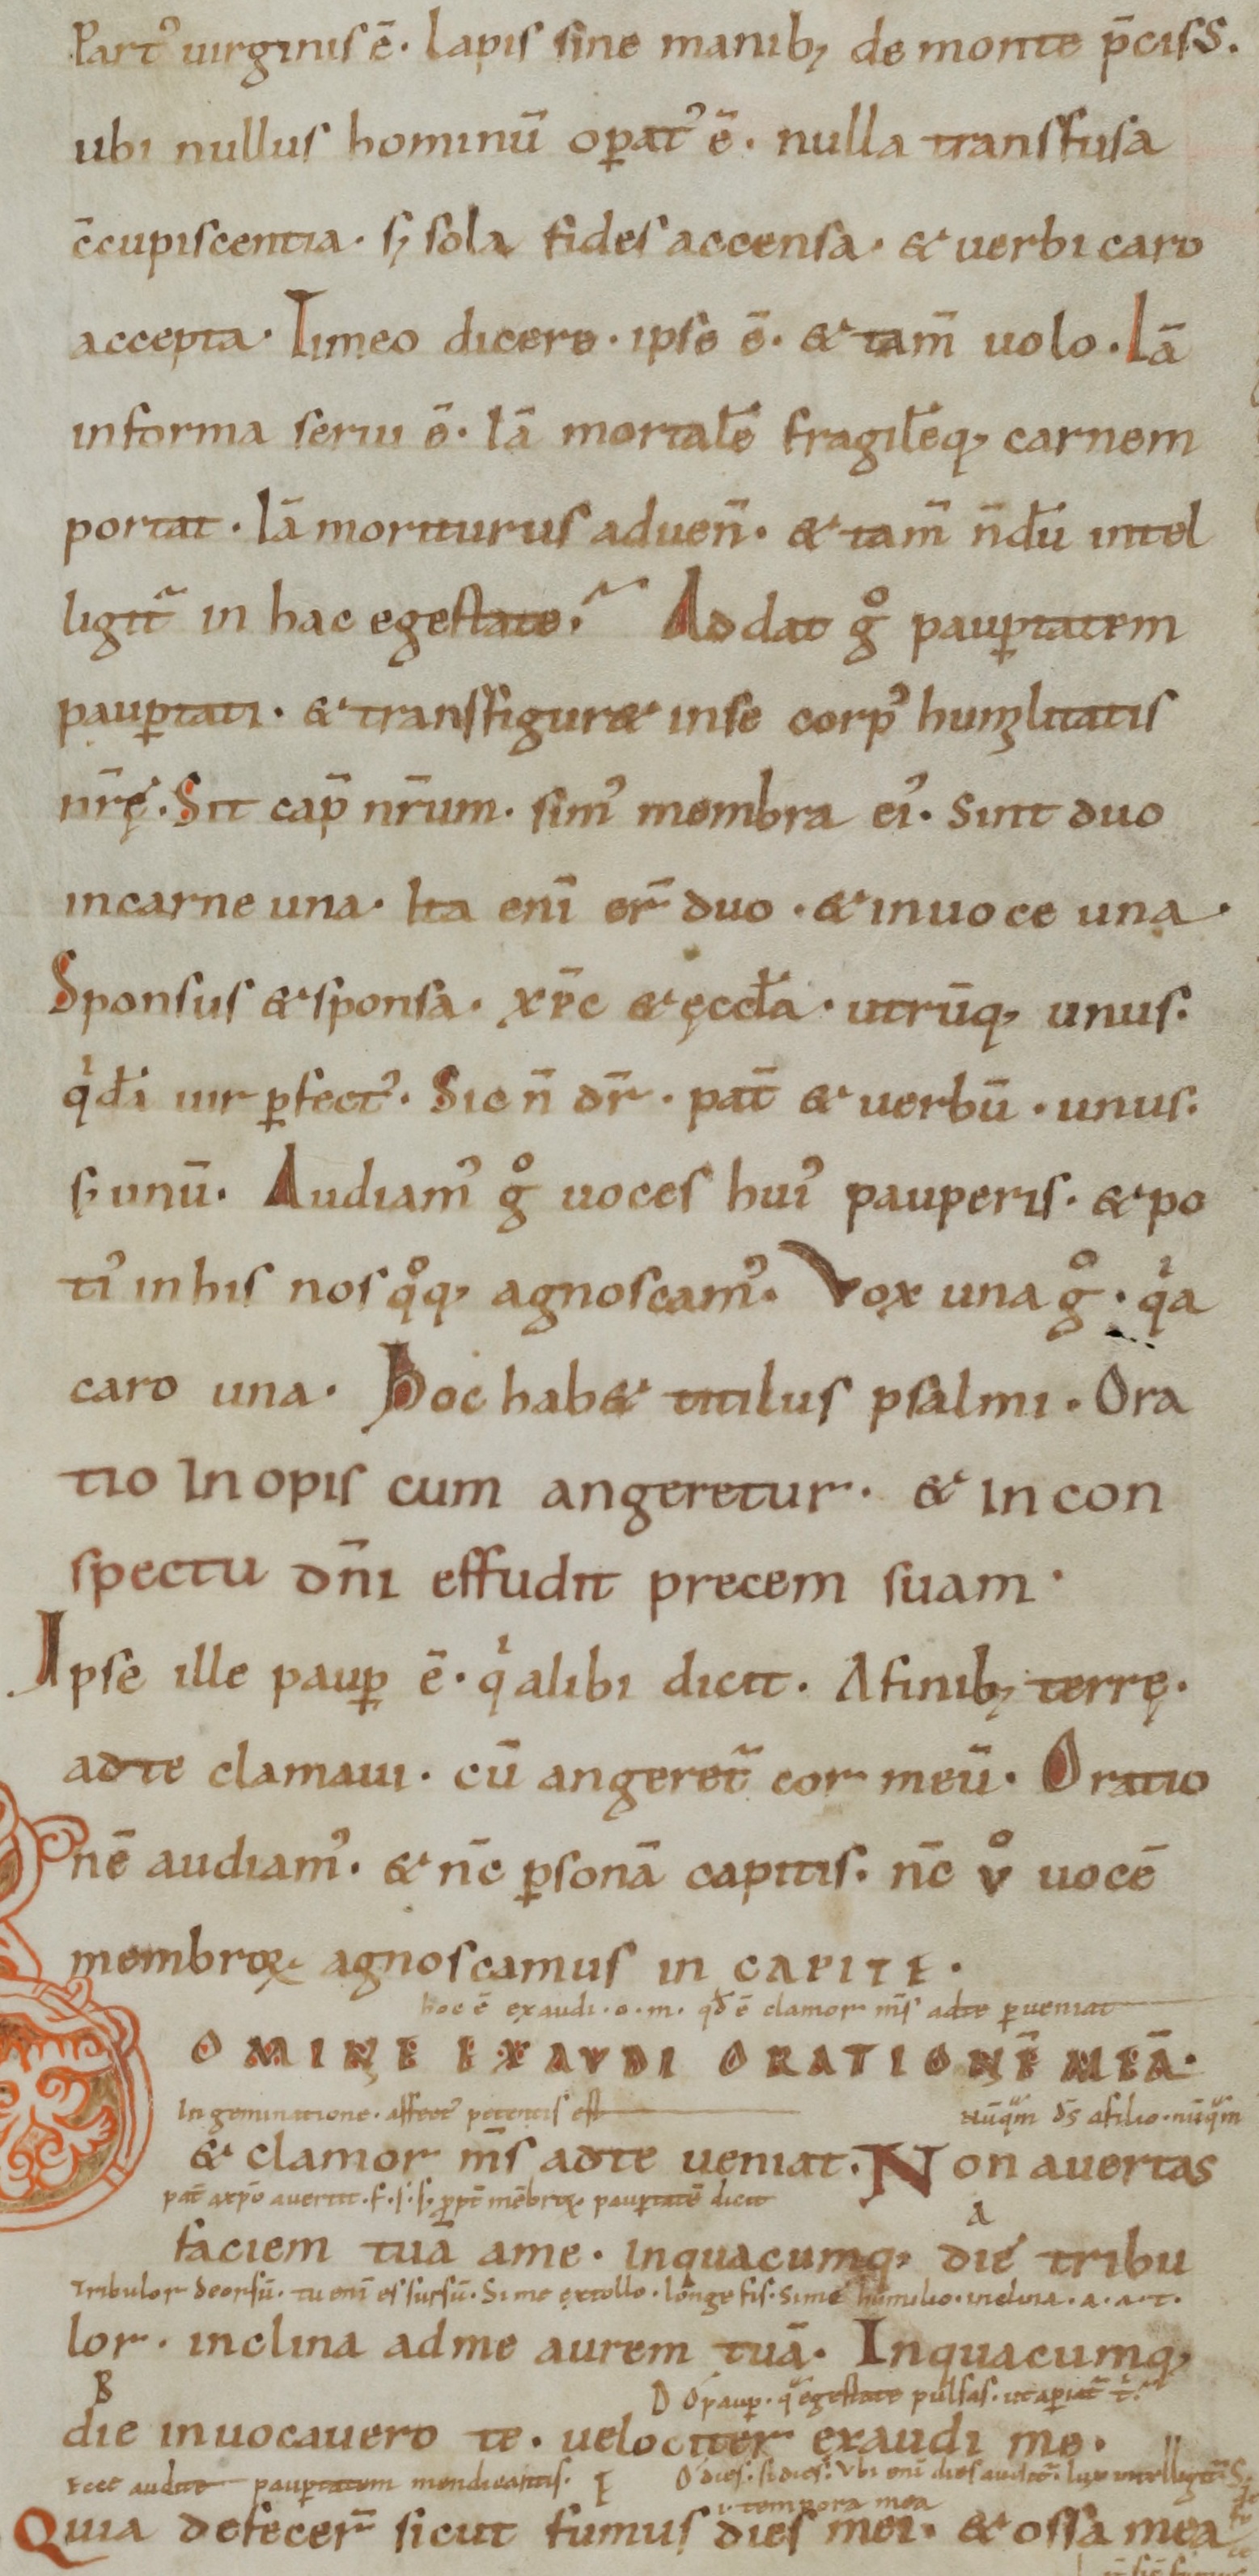 Part᾿ uirginis ē. Lapis sine manib; de monte p̄ciss.
ubi nullus hominū op̱at᾿ ē. nulla transfusa
c̄cupiscentia. s; sola fides accensa. & uerbi caro
accepta. Timeo dicere. ipse ē. & tam̄ uolo. Iā
informa serui ē. Iā mortalē fragilēq; carnem
portat. Iā moriturus aduen̄. & tam̄ n̄dū intel
ligit̃ in hac egestate. Addat g̊ paup̱tatem
paup̱tati. & transfigur& inse corp᾿ humilitatis
nr̄ę. Sit cap̄ nr̄um. sim᾿ membra ei᾿. Sint duo
incarne una. Ita enī er̄ duo. & inuoce una.
Sponsus & sponsa. xp̄c & ęccła. utrūq; unus.
qͥdā uir p̱fect᾿. Sic n̄ dr̄. pat̄ & uerbū. unus.
s; unū. Audiam᾿ g̊ uoces hui᾿ pauperis. & po
ti᾿ inhis nos qͦq; agnoscam᾿. Vox una g̊. qͥa
caro una. Hoc hab& titilus psalmi. Ora
tio Inopis cum angeretur. & In con
spectu dn̄i effudit precem suam.
Ipse ille paup̱ ē. qͥ alibi dicit. Afinib; terrę.
adte clamaui. cū angeret̃ cor meū. Oratio
nē audiam᾿. & n̄c p̱sonā capitis. n̄c v̊ uocē
membroꝝ agnoscamus in CAPITE.
hoc ē exaudi. o. m. qđ ē clamor m̄s adte p̱ueniat
OMINE EXAVDI ORATIONĒ MEĀ.
Ingeminatione. affect᾿ petentis est nūq̃m d̄s afilio. nūq̃m
& clamor m̄s adte ueniat. Non auertas
pat̄ axp̄o auertit. f. s. s. p̱pt̄ mēbroꝝ paup̱tatē dicit
A
faciem tuā ame. Inquacumq; die tribu
Tribulor deorsū. tu enī es sursū. Si me extollo. longe fis. Si me humilio. inclina. a. a. t.
lor. inclina adme aurem tuā. Inquacumq;
B D Ó paup̱. q̃ egestate pulsas. ut ap̱iat̃ t̄.
die inuocauero te. uelociter exaudi me.
Ecce audite paup̱tatem mendicantis. E
i. tempora mea
Quia defecer̄ sicut fumus dies mei. & ossa mea